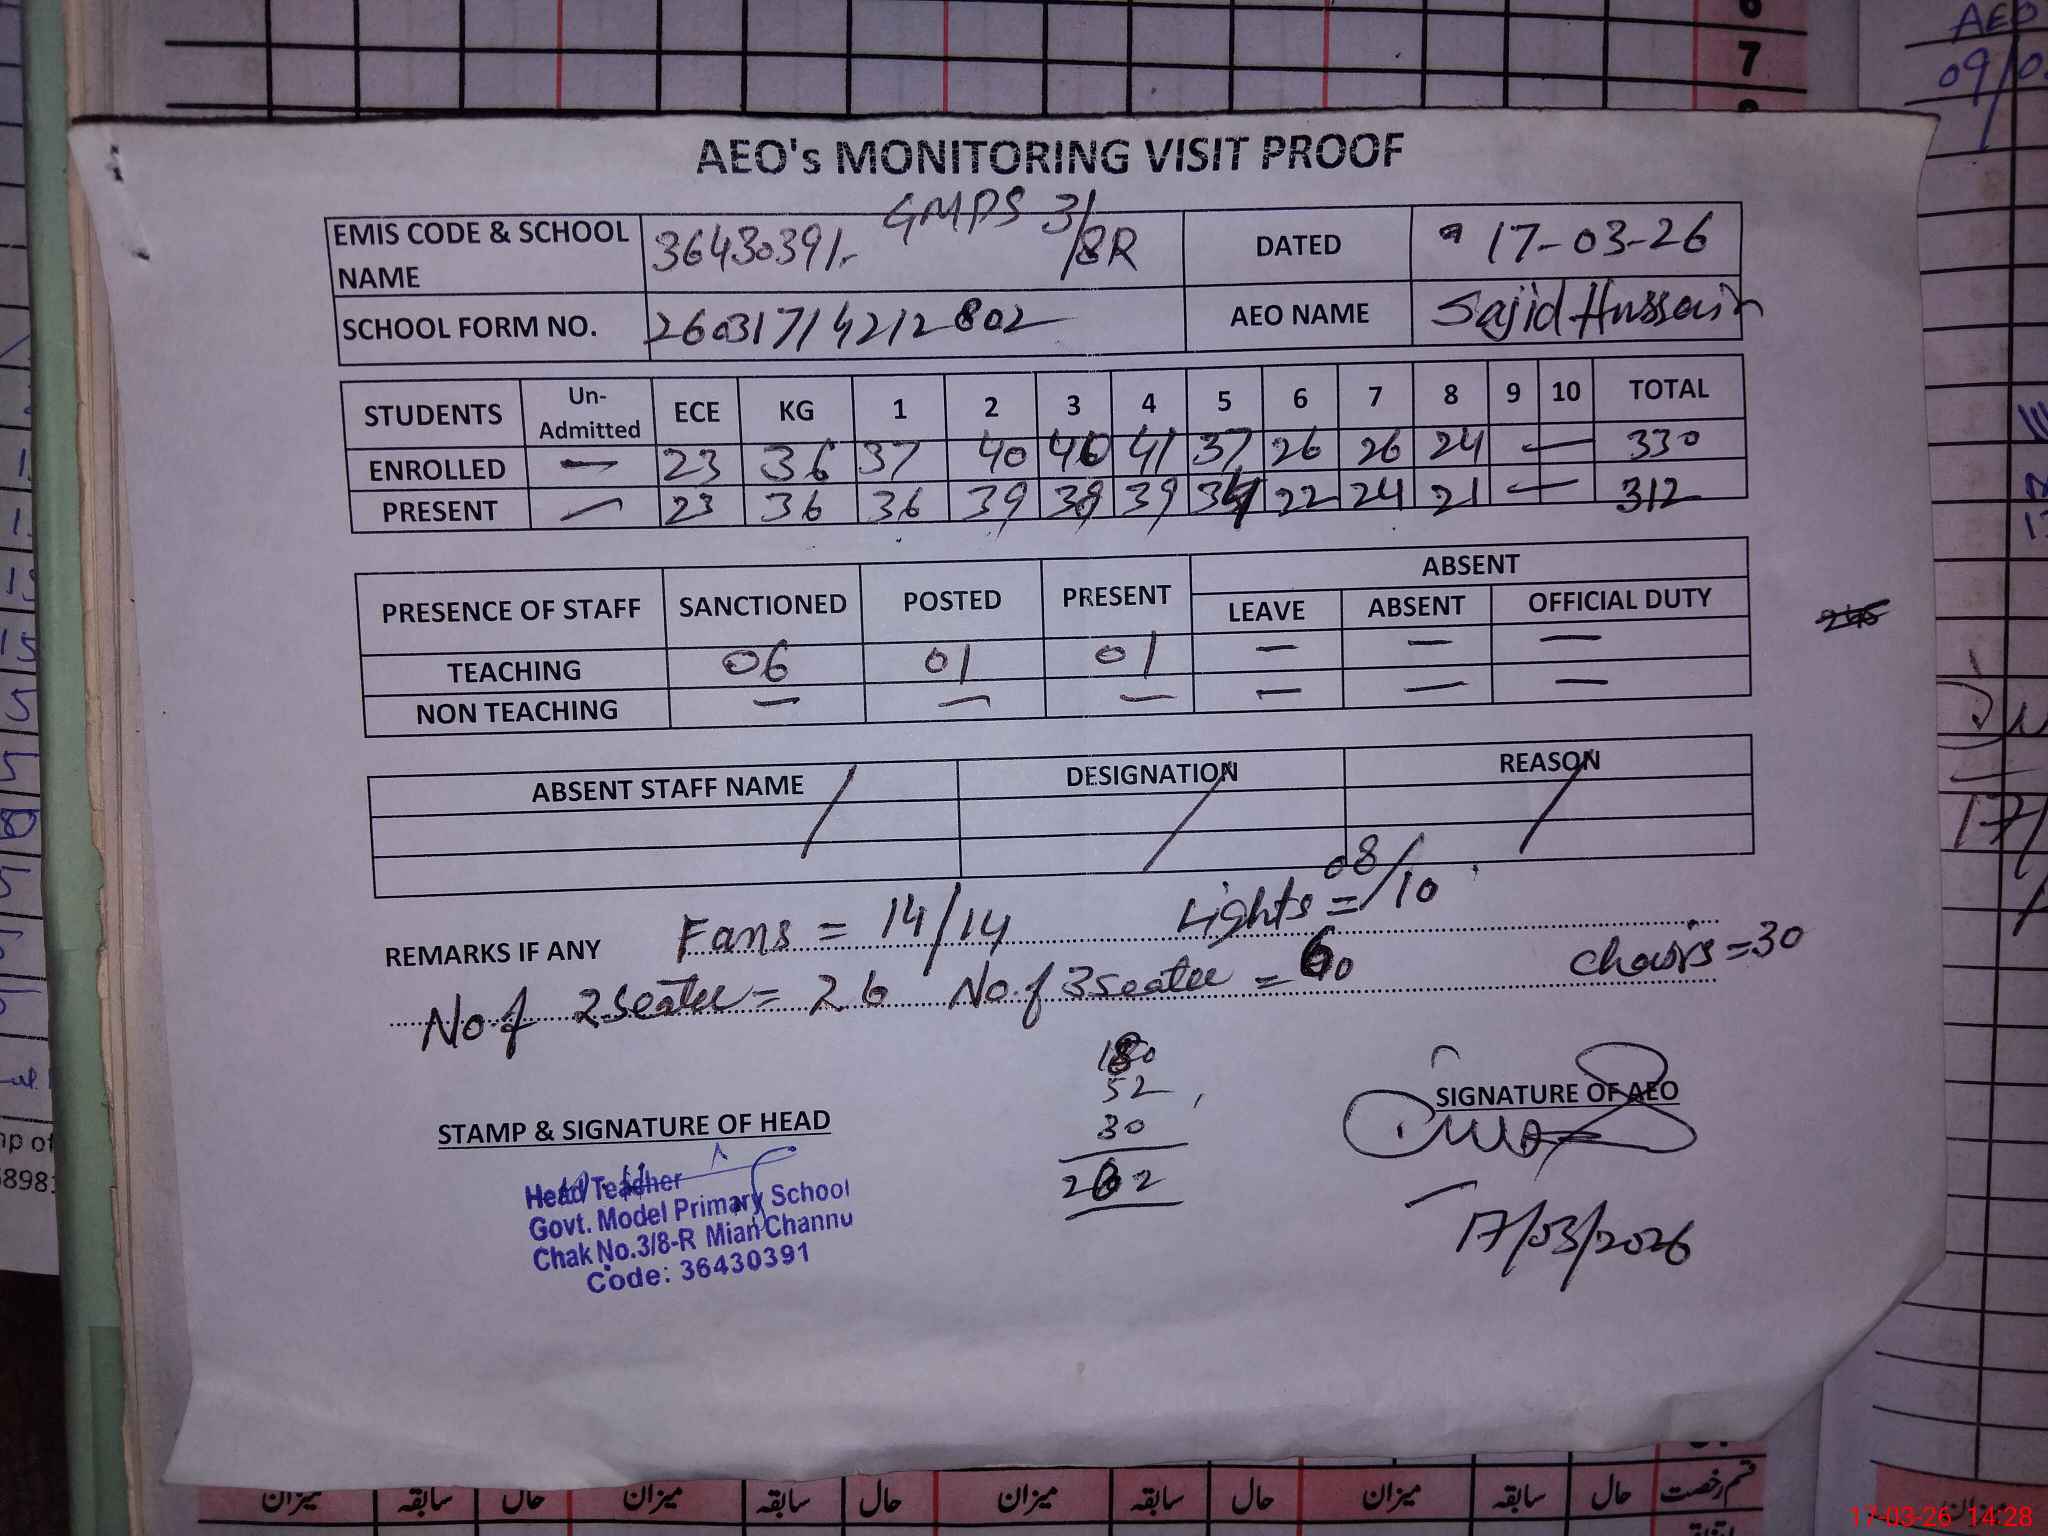 7
AEO
AEO's MONITORING VISIT PROOF
EMIS CODE & SCHOOL NAME 36430391.- GMPS 3/8R DATED 17-03-26
SCHOOL FORM NO. 26031714212802 AEO NAME Sajid Hussain
STUDENTS Un-Admitted ECE KG 1 2 3 4 5 6 7 8 9 10 TOTAL
ENROLLED — 23 36 37 40 40 41 37 26 26 24 — 330
PRESENT — 23 36 36 39 38 39 34 22 24 21 — 312
PRESENCE OF STAFF SANCTIONED POSTED PRESENT ABSENT
LEAVE ABSENT OFFICIAL DUTY
TEACHING 06 01 01 — — —
NON TEACHING — — — — — —
ABSENT STAFF NAME DESIGNATION REASON
REMARKS IF ANY Fans = 14/14 Lights = 08/10
No. of 2 seater = 26 No. of 3 seater = 60 chairs = 30
180
52
30
262
STAMP & SIGNATURE OF HEAD
Head Teacher
Govt. Model Primary School
Chak No.3/8-R Mian Channu
Code: 36430391
SIGNATURE OF AEO
17/03/2026
میزان سابقہ حال میزان سابقہ حال میزان سابقہ حال میزان سابقہ حال قسم رخصت
17-03-26 14:28